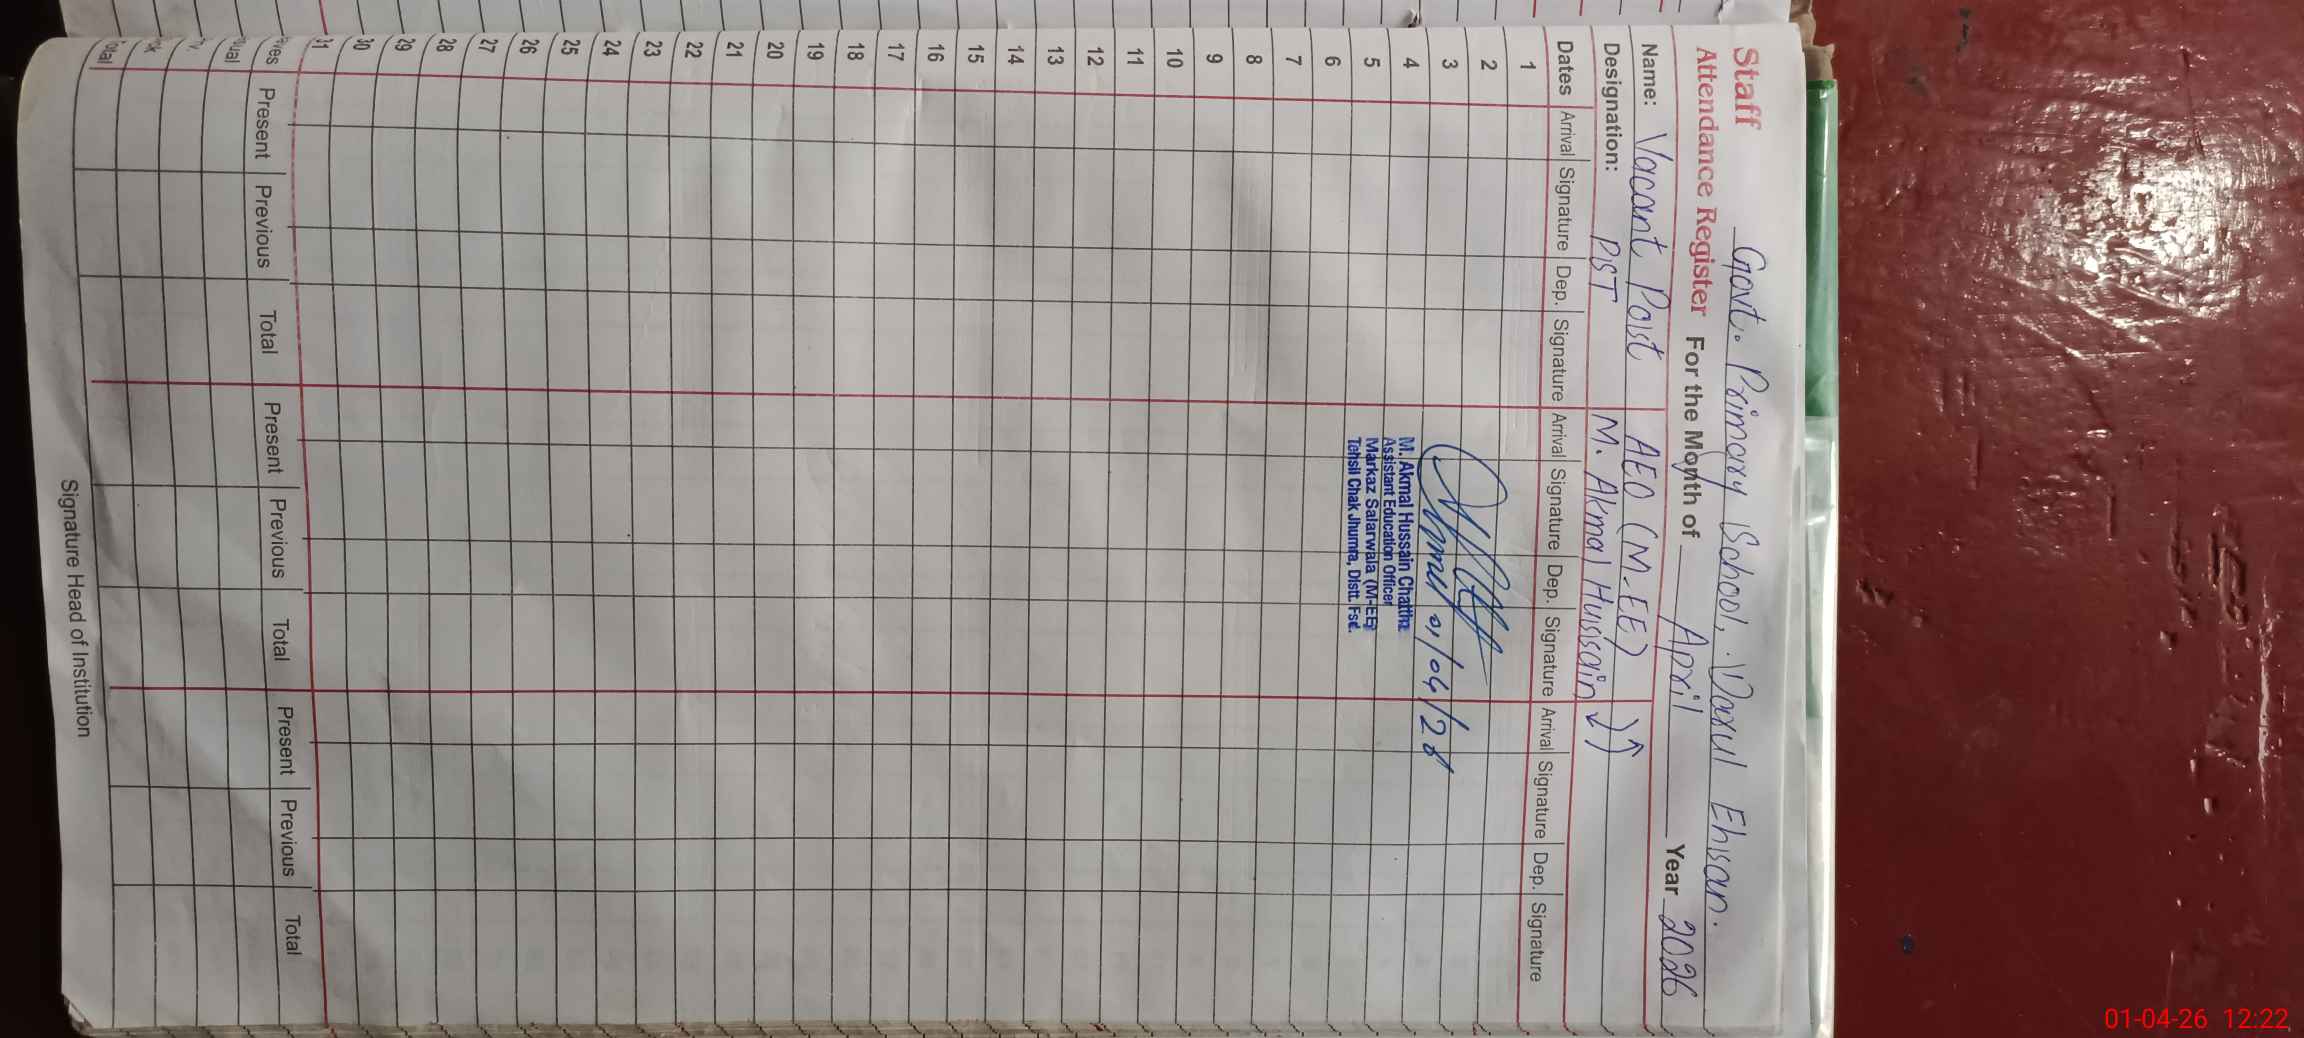 Staff Govt. Primary School, Darul Ehsan.
Attendance Register For the Month of April Year 2026
Name: Vacant Post AEO (M-EE)
Designation: PST M. Akmal Hussain
Dates Arrival Signature Dep. Signature Arrival Signature Dep. Signature Arrival Signature Dep. Signature
1
2
3 01/04/26
4 M. Akmal Hussain Chattha
Assistant Education Officer
5 Markaz Salarwala (M-EE)
Tehsil Chak Jhumra, Distt. Fsd.
6
7
8
9
10
11
12
13
14
15
16
17
18
19
20
21
22
23
24
25
26
27
28
29
30
31
aves Present Previous Total Present Previous Total Present Previous Total
sual
otal
Signature Head of Institution
01-04-26 12:22